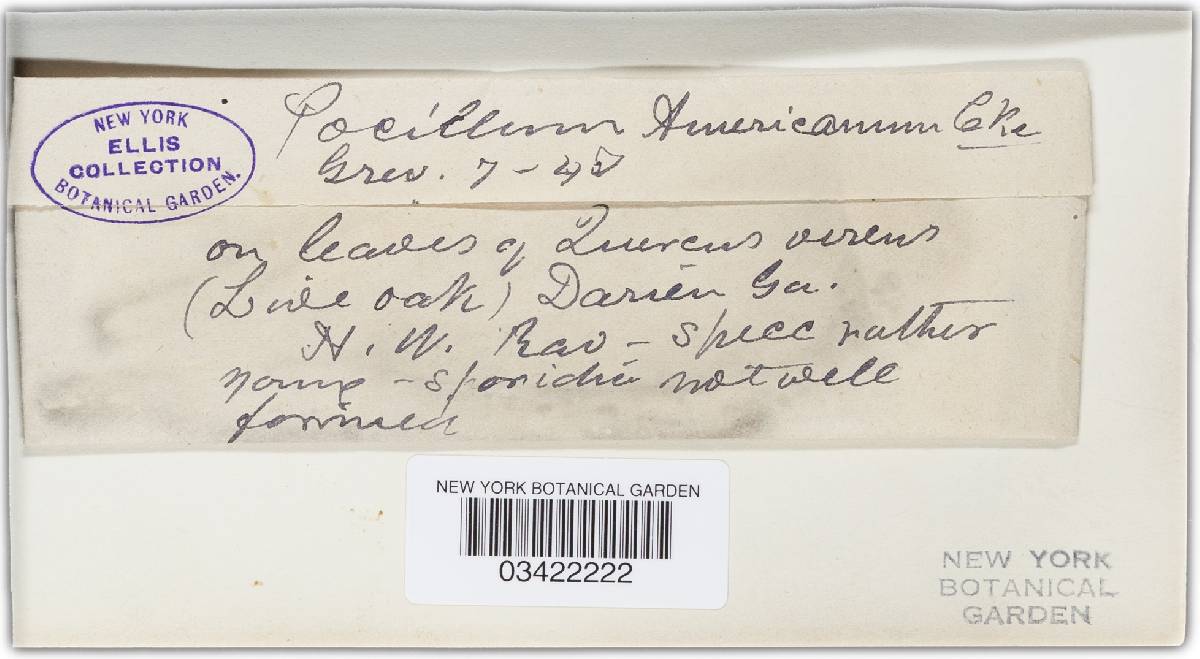 NEW YORK
ELLIS
COLLECTION
BOTANICAL GARDEN.
Pocillum Americanum Cke
Grev. 7-45
on leaves of Quercus virens
(Live oak) Darien Ga.
H. W. Rav - specc rather
young - sporidia not well
formed
NEW YORK BOTANICAL GARDEN
03422222
NEW YORK
BOTANICAL
GARDEN